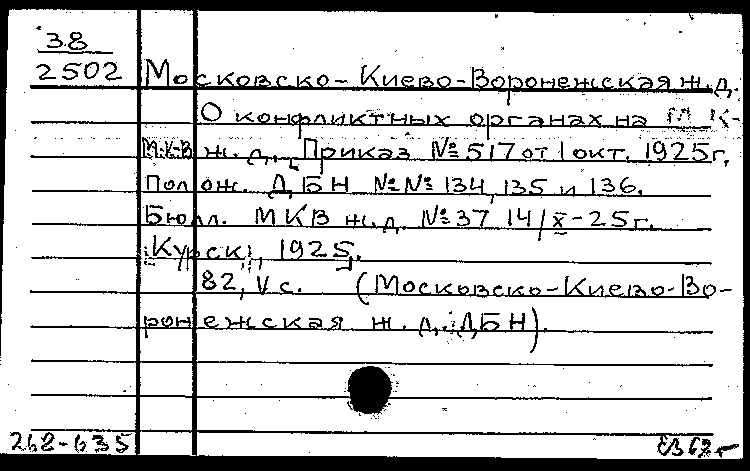 38
2502 Московско-Киево-Воронежская ж.д.
О конфликтных органах на М К-
М.К-В ж.д. [Приказ №517 от 1 окт. 1925г.
Полож. ДБН №№ 134, 135 и 136.
Бюлл. МКВ ж.д. №37 14/X-25г.
[Курск], 1925].
82, V с. (Московско-Киево-Во-
ронежская ж.д. ДБН).
262-635